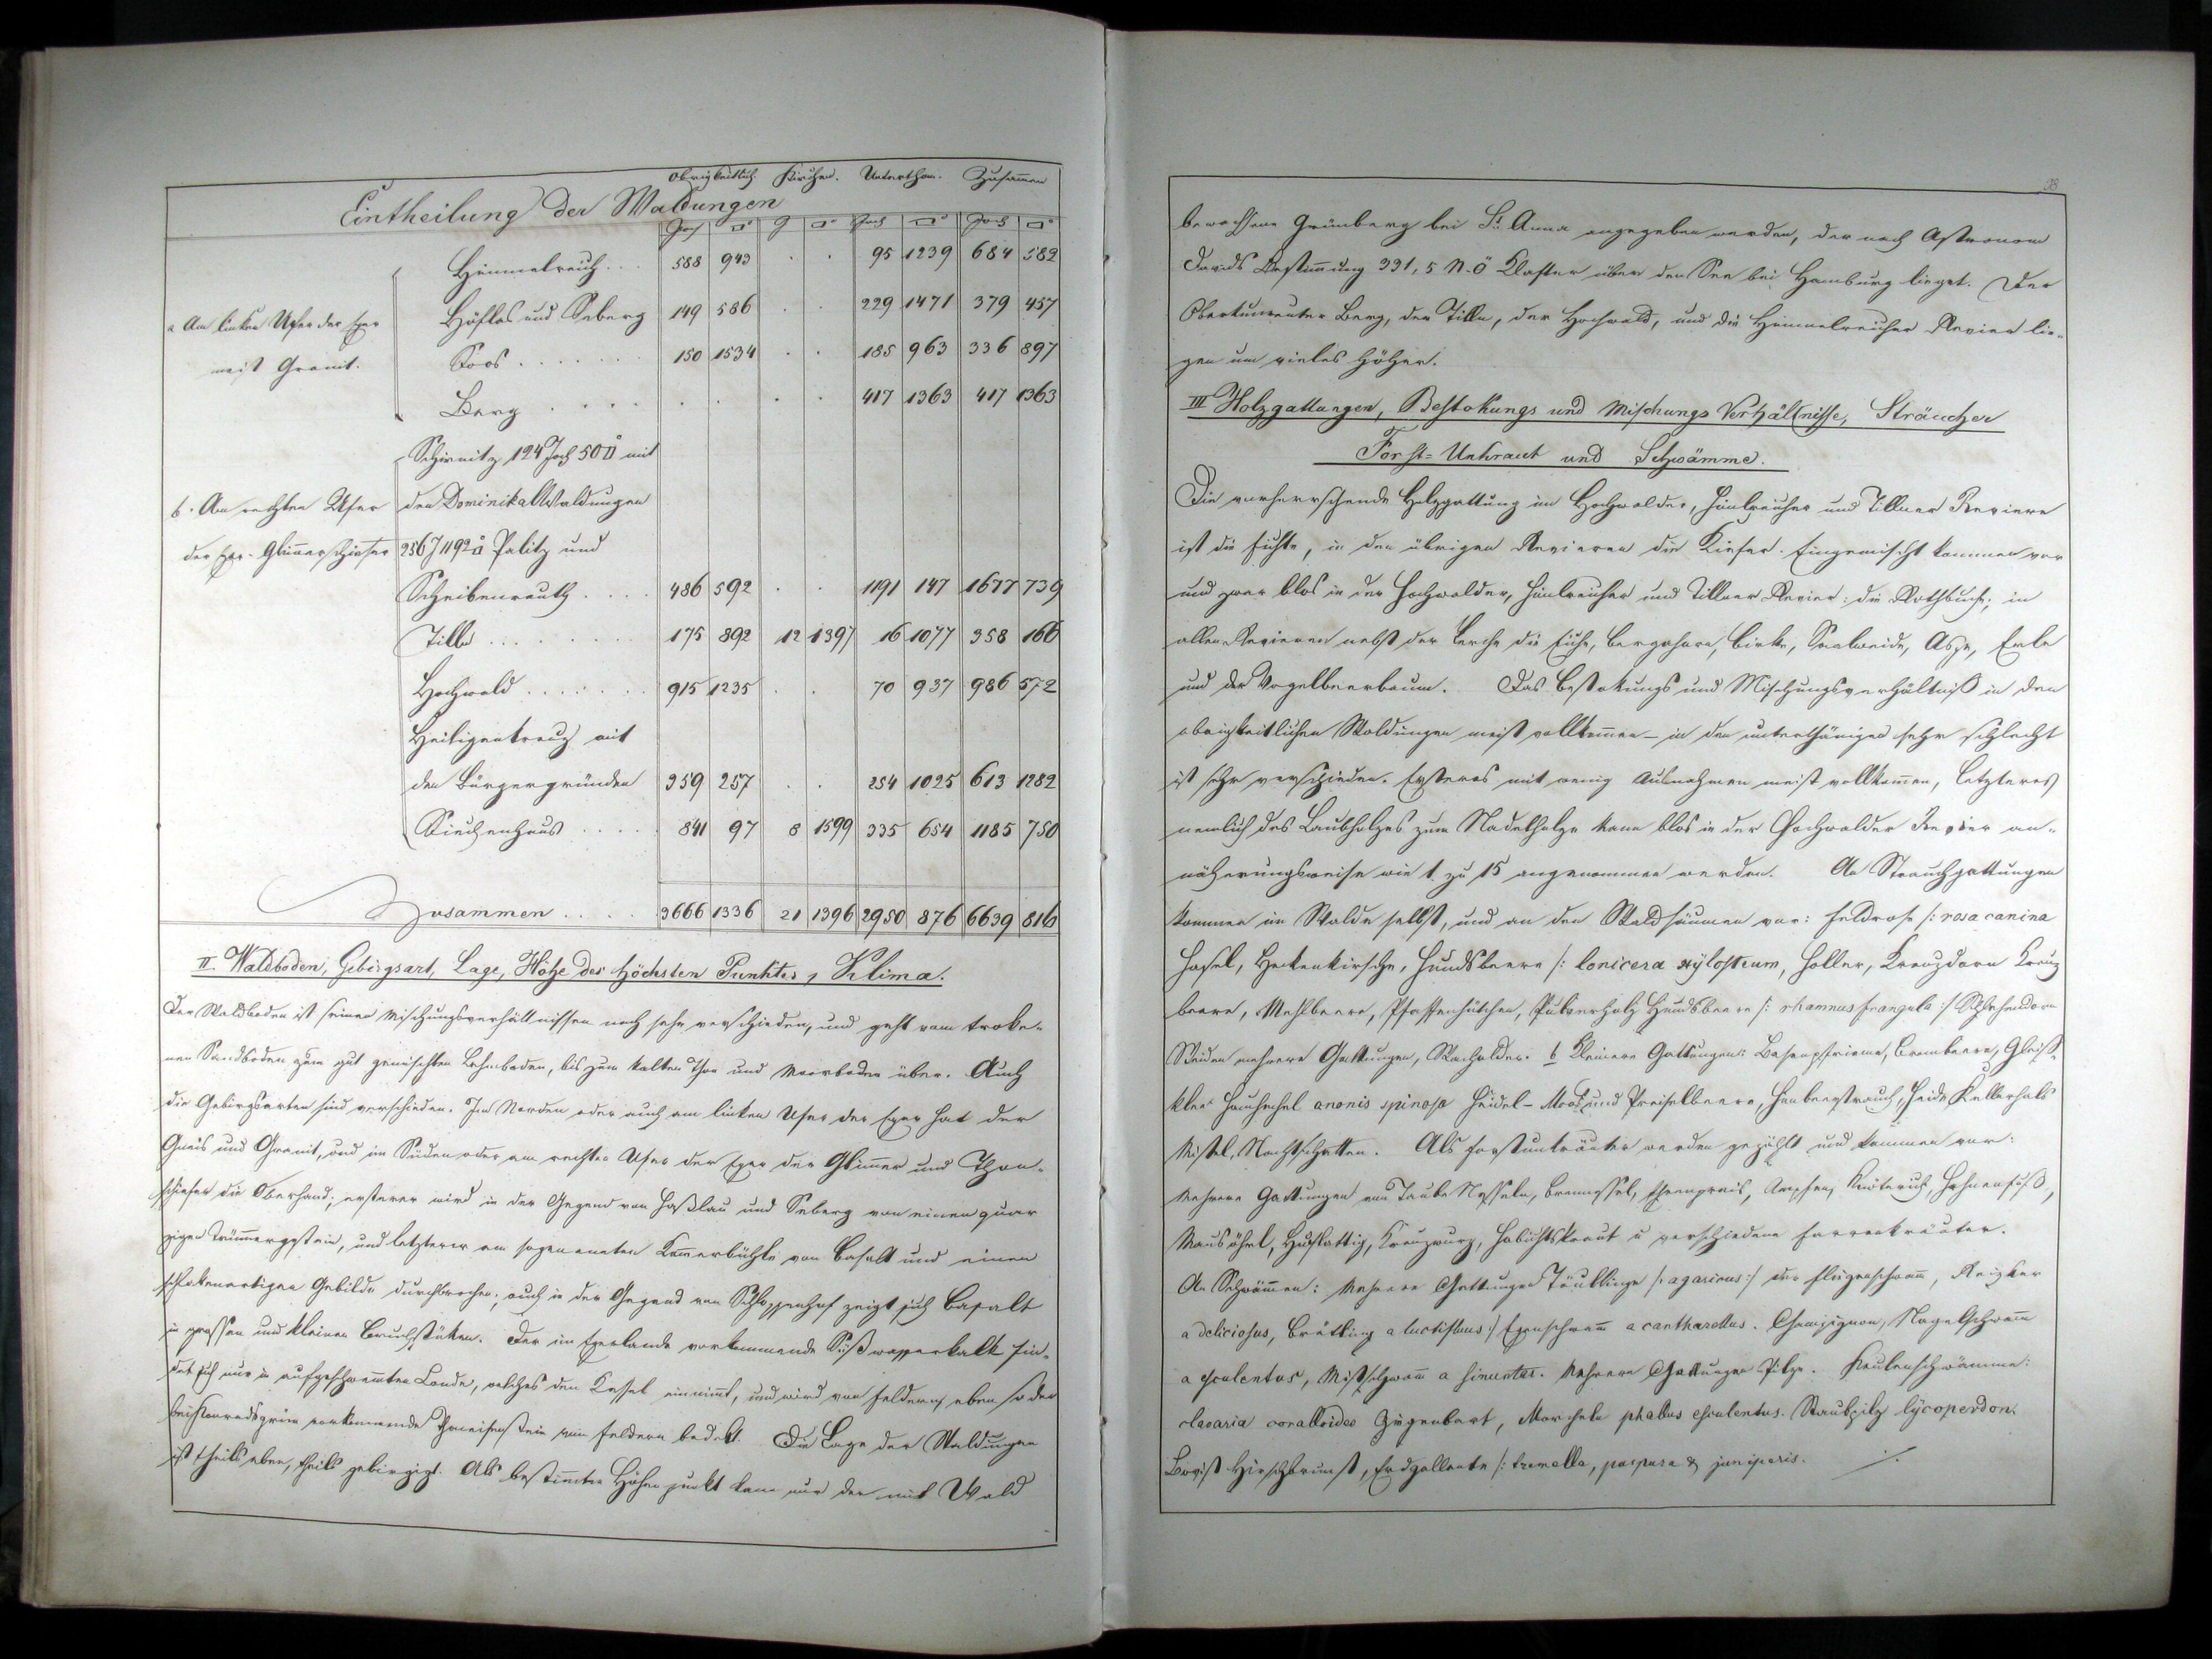 Obrigkeitlich Kirchen. Unterthan. Zusamen
Eintheilung der Waldungen
Joch □° J □° Joch □° Joch □°
Himmelreich . . . 588 943 . . 95 1239 684 582
a Am linken Ufer der Eger
meist Granit.
Höflas und Seberg 149 586 . . 229 1471 379 457
Soos . . . . . . 150 1534 . . 185 963 336 897
Berg . . . . . . . . . 417 1363 417 1363
Schirnitz 124 Joch 50□ mit
b. Am rechten Ufer
der Eger. Glimerschiefer
den Dominikal Waldungen
256 J 1192□ Palitz und
Scheibenreuth . . . . 486 592 . . 1191 147 1677 739
Tilln . . . . . . . 175 892 12 1397 16 1077 358 166
Hochwald . . . . . . . 915 1235 . . 70 937 986 572
Heiligenkreuz mit
den Bürgergründen 359 257 . . 254 1025 613 1282
Siechenhaus . . . . . 841 97 8 1599 335 654 1185 750
Zusammen . . . . . 3666 1336 21 1396 2950 876 6639 816
II. Waldboden, Gebirgsart, Lage, Höhe des höchsten Punktes, Klima.
Der Waldboden ist seinen Mischungsverhältnissen nach sehr verschieden, und geht vom troke-
nen Sandboden zum gut gemischten Lehmboden, bis zum kalten Thon und Moorboden über. Auch
die Gebirgsarten sind verschieden. Im Norden oder auch am linken Ufer der Eger hat der
Gneis und Granit, und im Süden oder am rechten Ufer der Eger der Glimer und Thon-
schiefer die Oberhand; ersterer wird in der Gegend von Haßlau und Seberg von einem quar
zigen Trümmergestein, und letzterer am sogenannten Kamerbühle von Basalt und einem
schlakenartigen Gebilde durchbrochen; auch in der Gegend von Schloppenhof zeigt sich Basalt
in grossen und kleinen Bruchstüken. Der im Egerlande vorkommende Süßwasserkalk fin-
det sich nur in aufgeschwemten Lande, welches den Kessel einnimt, und wird von Feldern eben so der
bei Konradsgrün vorkommende Thoneisenstein von Feldern bedekt. Die Lage der Waldungen
ist theils eben, theils gebirgigt. Als bestimter Höhenpunkt kann nur der mit Wald
28
bewachsene Grünberg bei St. Anna angegeben werden, der nach Astronom
Davids Bestimung 331,5 N. Ö Klafter über der See bei Hamburg lieget. Der
Oberkunreuter Berg, der Tilln, der Hochwald, und die Himmelreicher Revier lie-
gen um vieles höher.
III Holzgattungen, Bestokungs und Mischungs Verhältnisse, Sträucher
Forst-Unkraut und Schwämme.
Die vorherrschende Holzgattung im Hochwalder, Himlreicher und Tillner Reviere
ist die Fichte, in den übrigen Revieren die Kiefer. Eingemischt kommen vor
und zwar blos in der Hochwalder, Himlreicher und Tillner Revier: die Rothbuche; in
allen Revieren nebst der Lerche die Eiche, Bergahorn, Birke, Saalweide, Aspe, Erle
und der Vogelbeerbaum. Das Bestokungs und Mischungsverhältniß in den
obrigkeitlichen Waldungen meist vollkomen – in den unterthänigen sehr schlecht
ist sehr verschieden. Ersteres mit wenig Ausnahmen meist vollkomen, letzteres
nemlich des Laubholzes zum Nadelholze kann blos in der Hochwalder Revier an-
näherungsweise wie 1 zu 15 angenommen werden. An Strauchgattungen
kommen im Walde selbst, und an den Waldsäumen vor: Feldrose /: rosa canina
Hasel, Hekenkirsche, Hundsbeere /: lonicera xylosteum, Holler, Kreuzdorn Kreuz
beere, Mehlbeere, Pfaffenhütchen, Pulverholz Hundsbeere /: rhamnus frangula :/ Schlehendorn
Weiden mehrere Gattungen, Wacholder. b Kleinere Gattungen: Besenpfrieme, Brombeere, Gleiß-
klee Hauhechel ononis spinosa Heidel- Moos und Preiselbeere, Himbeerstrauch, Heide, Kellerhals
Mistel, Nachtschatten. Als Forstunkräuter werden gezählt und kommen vor:
Mehrere Gattungen von Taube Nesseln, Brennessel, Ehrenpreis, Ampfer, Knöterich, Hahnenfuß,
Mausöhrl, Huflattig, Kreuzwurz, Habichtskraut u verschiedene Farrenkräuter.
An Schwämen: Mehrere Gattungen Täublinge /: agaricus :/ der Fliegenschwam, Reizker
a deliciosus, Brätling a lactifluus :/ Eyerschwam a cantharellus. Champignon, Nagelschwam
a esculentus, Mistschwam a fimentar. Mehrere Gattungen Pilze. Keulenschwämme:
clavaria coralloides Ziegenbart, Morcheln phallus esculentus. Staubpilz lycoperdon.
Bovist Hirschbrunst, Erdgallerte /: tremella, purpura & juniperis. ./.